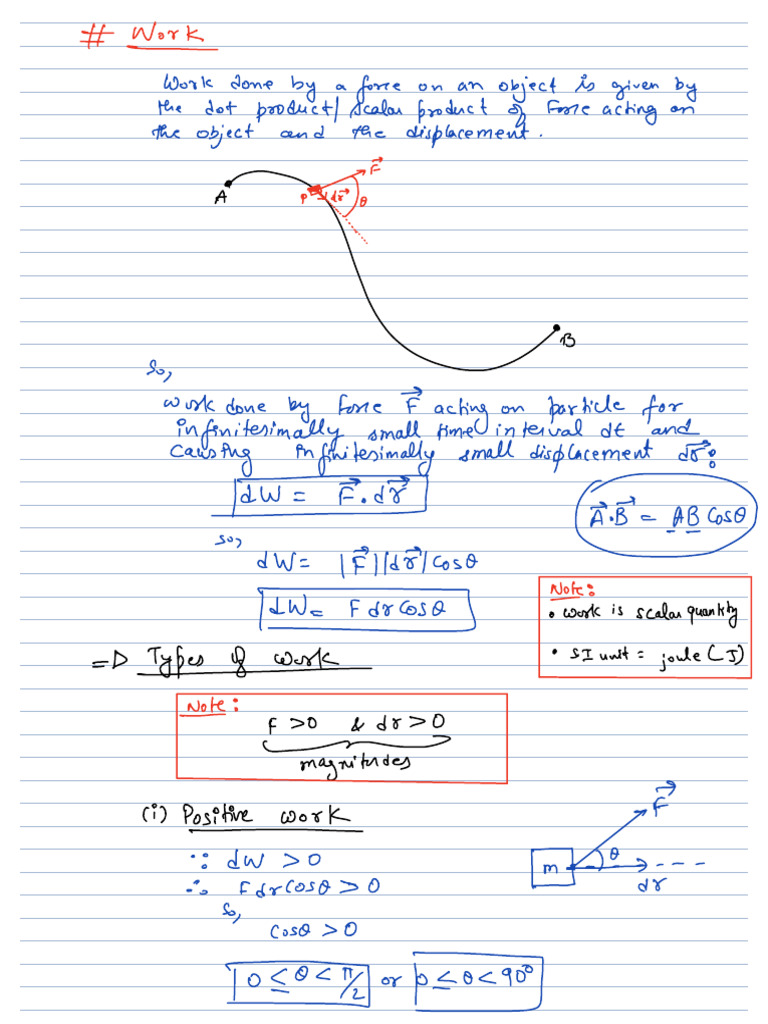 # Work
Work done by a force on an object is given by
the dot product/scalar product of Force acting on
the object and the displacement.
A
P
dr⃗
F⃗
θ
B
So,
Work done by force F⃗ acting on particle for
infinitesimally small time interval dt and
causing infinitesimally small displacement dr⃗:
dW = F⃗.dr⃗
A⃗.B⃗ = AB cosθ
so,
dW = |F⃗||dr⃗|cosθ
dW = F dr cosθ
Note:
• work is scalar quantity
• SI unit = joule (J)
⇒ Types of work
Note:
F > 0 & dr > 0
magnitudes
(i) Positive work
∵ dW > 0
∴ F dr cosθ > 0
So,
cosθ > 0
0 ≤ θ < π/2 or 0 ≤ θ < 90°
F⃗
θ
m
dr